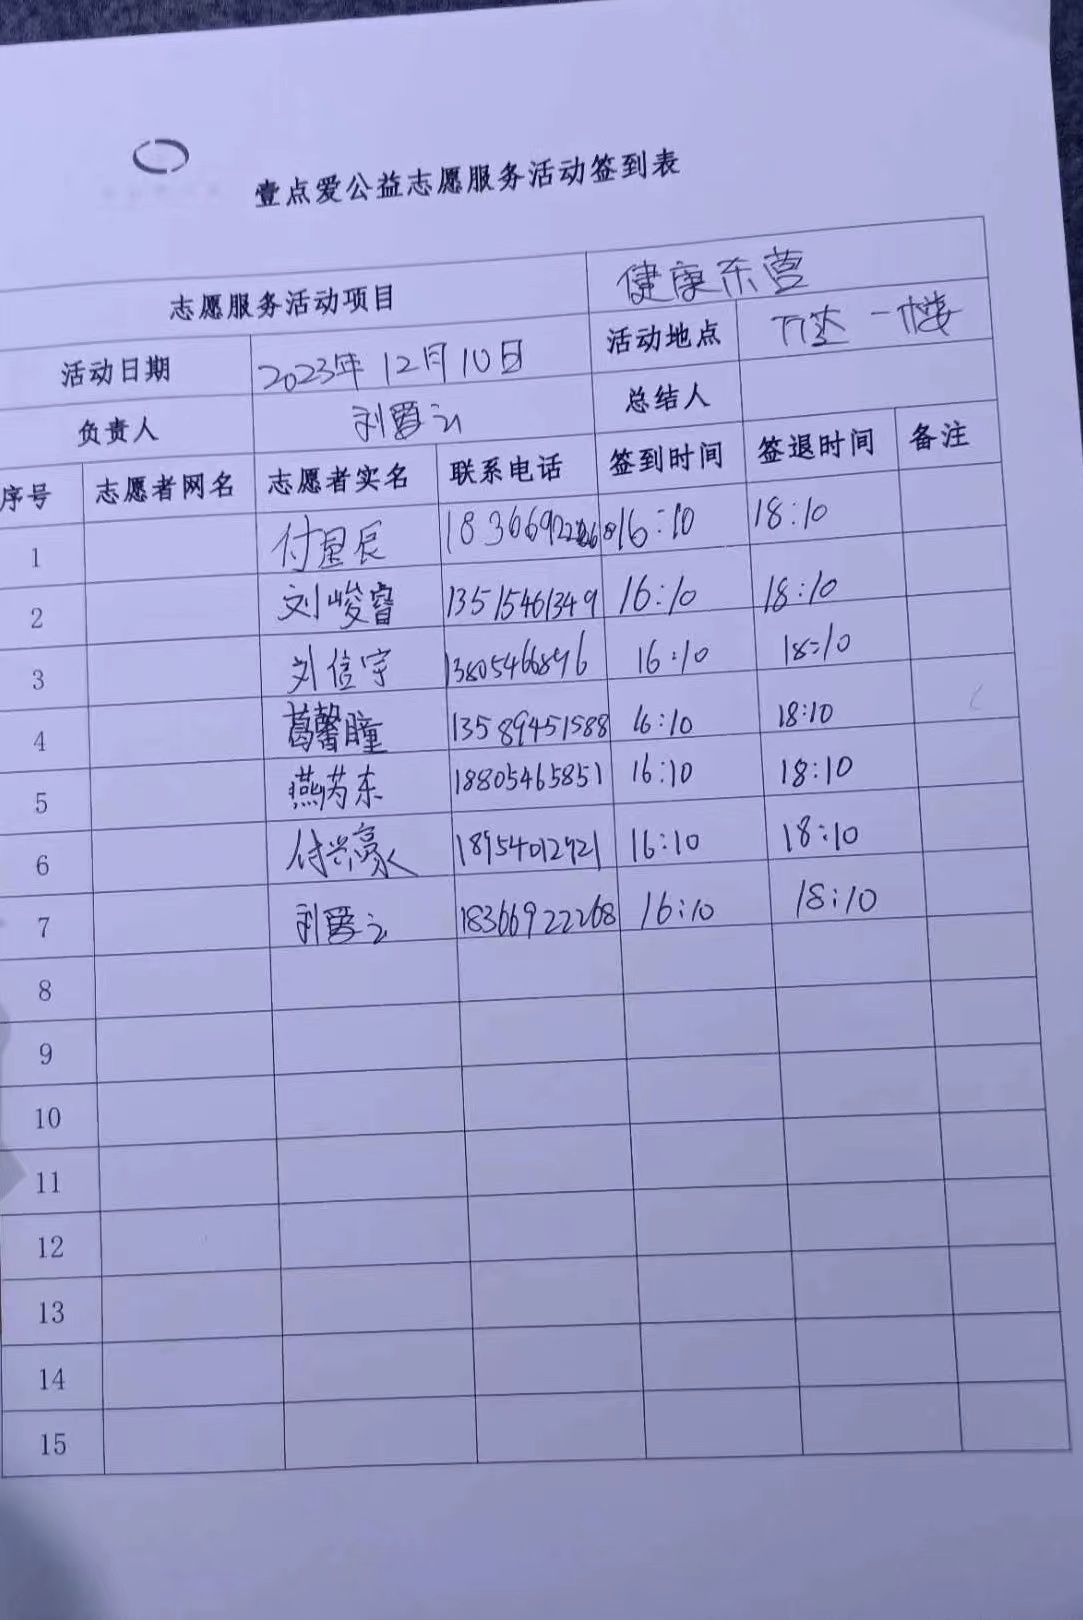 壹点爱公益志愿服务活动签到表
志愿服务活动项目 健康东营
活动日期 2023年12月10日 活动地点 万达一楼
负责人 刘爱云 总结人
序号 志愿者网名 志愿者实名 联系电话 签到时间 签退时间 备注
1 付星辰 18366922268 16:10 18:10
2 刘峻睿 13515461349 16:10 18:10
3 刘信宇 13805466896 16:10 18:10
4 葛馨瞳 13589451588 16:10 18:10
5 燕芮东 18805465851 16:10 18:10
6 付兴豪 18954012921 16:10 18:10
7 刘爱云 18366922268 16:10 18:10
8
9
10
11
12
13
14
15